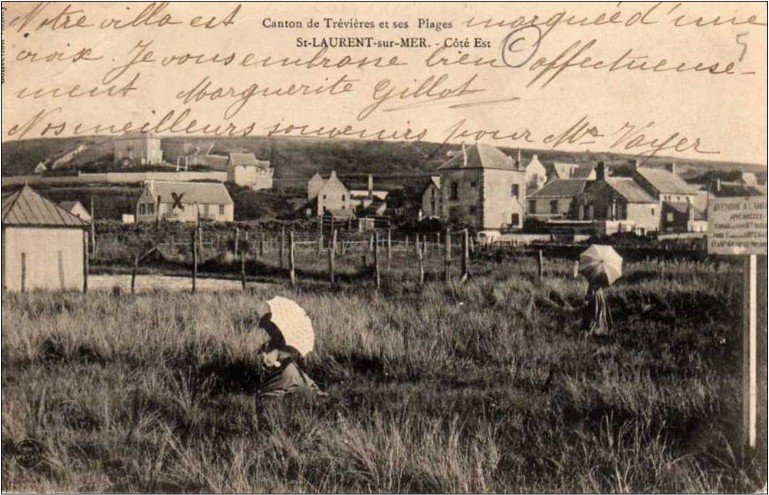 Notre villa est marquée d'une
Canton de Trévières et ses Plages
St-LAURENT-sur-MER. - Côté Est
croix. Je vous embrasse bien affectueuse-
ment Marguerite Gillot
Nos meilleurs souvenirs pour Mr Voyer
©
5
X